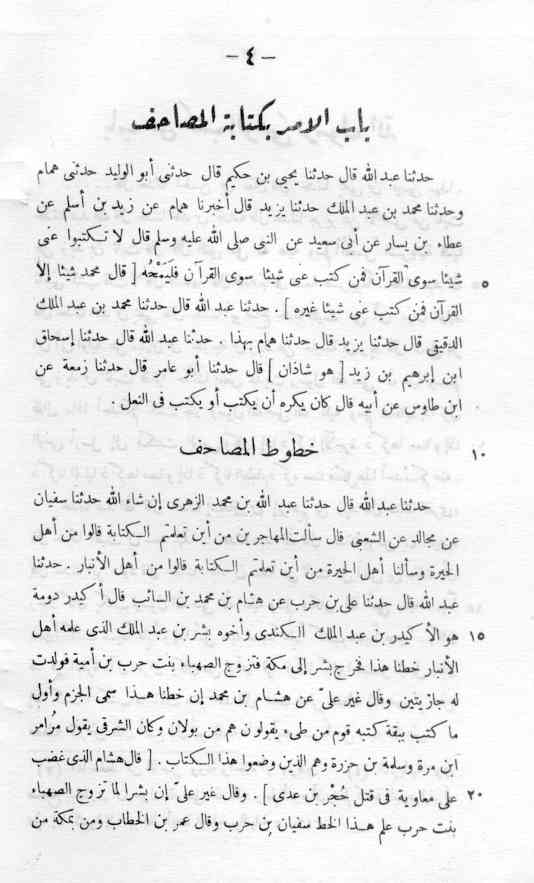 - ٤ -
باب الامر بكتابة المصاحف
حدثنا عبد الله قال حدثنا يحيي بن حكيم قال حدثنى أبو الوليد حدثنى همام
وحدثنا محمد بن عبد الملك حدثنا يزيد قال أخبرنا همام عن زيد بن أسلم عن
عطاء بن يسار عن أبى سعيد عن النبى صلى الله عليه وسلم قال لا تكتبوا عنى
شيئا سوى القرآن فمن كتب عنى شيئا سوى القرآن فَليَمْحُه [ قال محمد شيئا إلا ٥
القرآن فمن كتب عنى شيئا غيره ] . حدثنا عبد الله قال حدثنا محمد بن عبد الملك
الدقيقى قال حدثنا يزيد قال حدثنا همام بهذا . حدثنا عبد الله قال حدثنا إسحاق
ابن إبرهيم بن زيد [ هو شاذان ] قال حدثنا أبو عامر قال حدثنا زمعة عن
ابن طاوس عن أبيه قال كان يكره أن يكتب أو يكتب فى النعل .
خطوط المصاحف ١٠
حدثنا عبد الله قال حدثنا عبد الله بن محمد الزهرى إن شاء الله حدثنا سفيان
عن مجالد عن الشعبى قال سألت المهاجرين من أين تعلمتم الكتابة قالوا من أهل
الحيرة وسألنا أهل الحيرة من أين تعلمتم الكتابة قالوا من أهل الأنبار . حدثنا
عبد الله قال حدثنا على بن حرب عن هشام بن محمد بن السائب قال أكيدر دومة
هو الأكيدر بن عبد الملك الكندى وأخوه بشر بن عبد الملك الذى علمه أهل ١٥
الأنبار خطنا هذا فخرج بشر إلى مكة فتزوج الصهباء بنت حرب بن أمية فولدت
له جاريتين وقال غير علىّ عن هشام بن محمد إن خطنا هذا سمى الجزم وأول
ما كتب ببقة كتبه قوم من طىء يقولون هم من بولان وكان الشرقى يقول مُرامر
ابن مرة وسلمة بن حزرة وهم الذين وضعوا هذا الكتاب . [ قال هشام الذى غضب
على معاوية فى قتل حُجْر بن عدى ] . وقال غير علىّ إن بشرا لما تزوج الصهباء ٢٠
بنت حرب علم هذا الخط سفيان بن حرب وقال عمر بن الخطاب ومن بمكة من